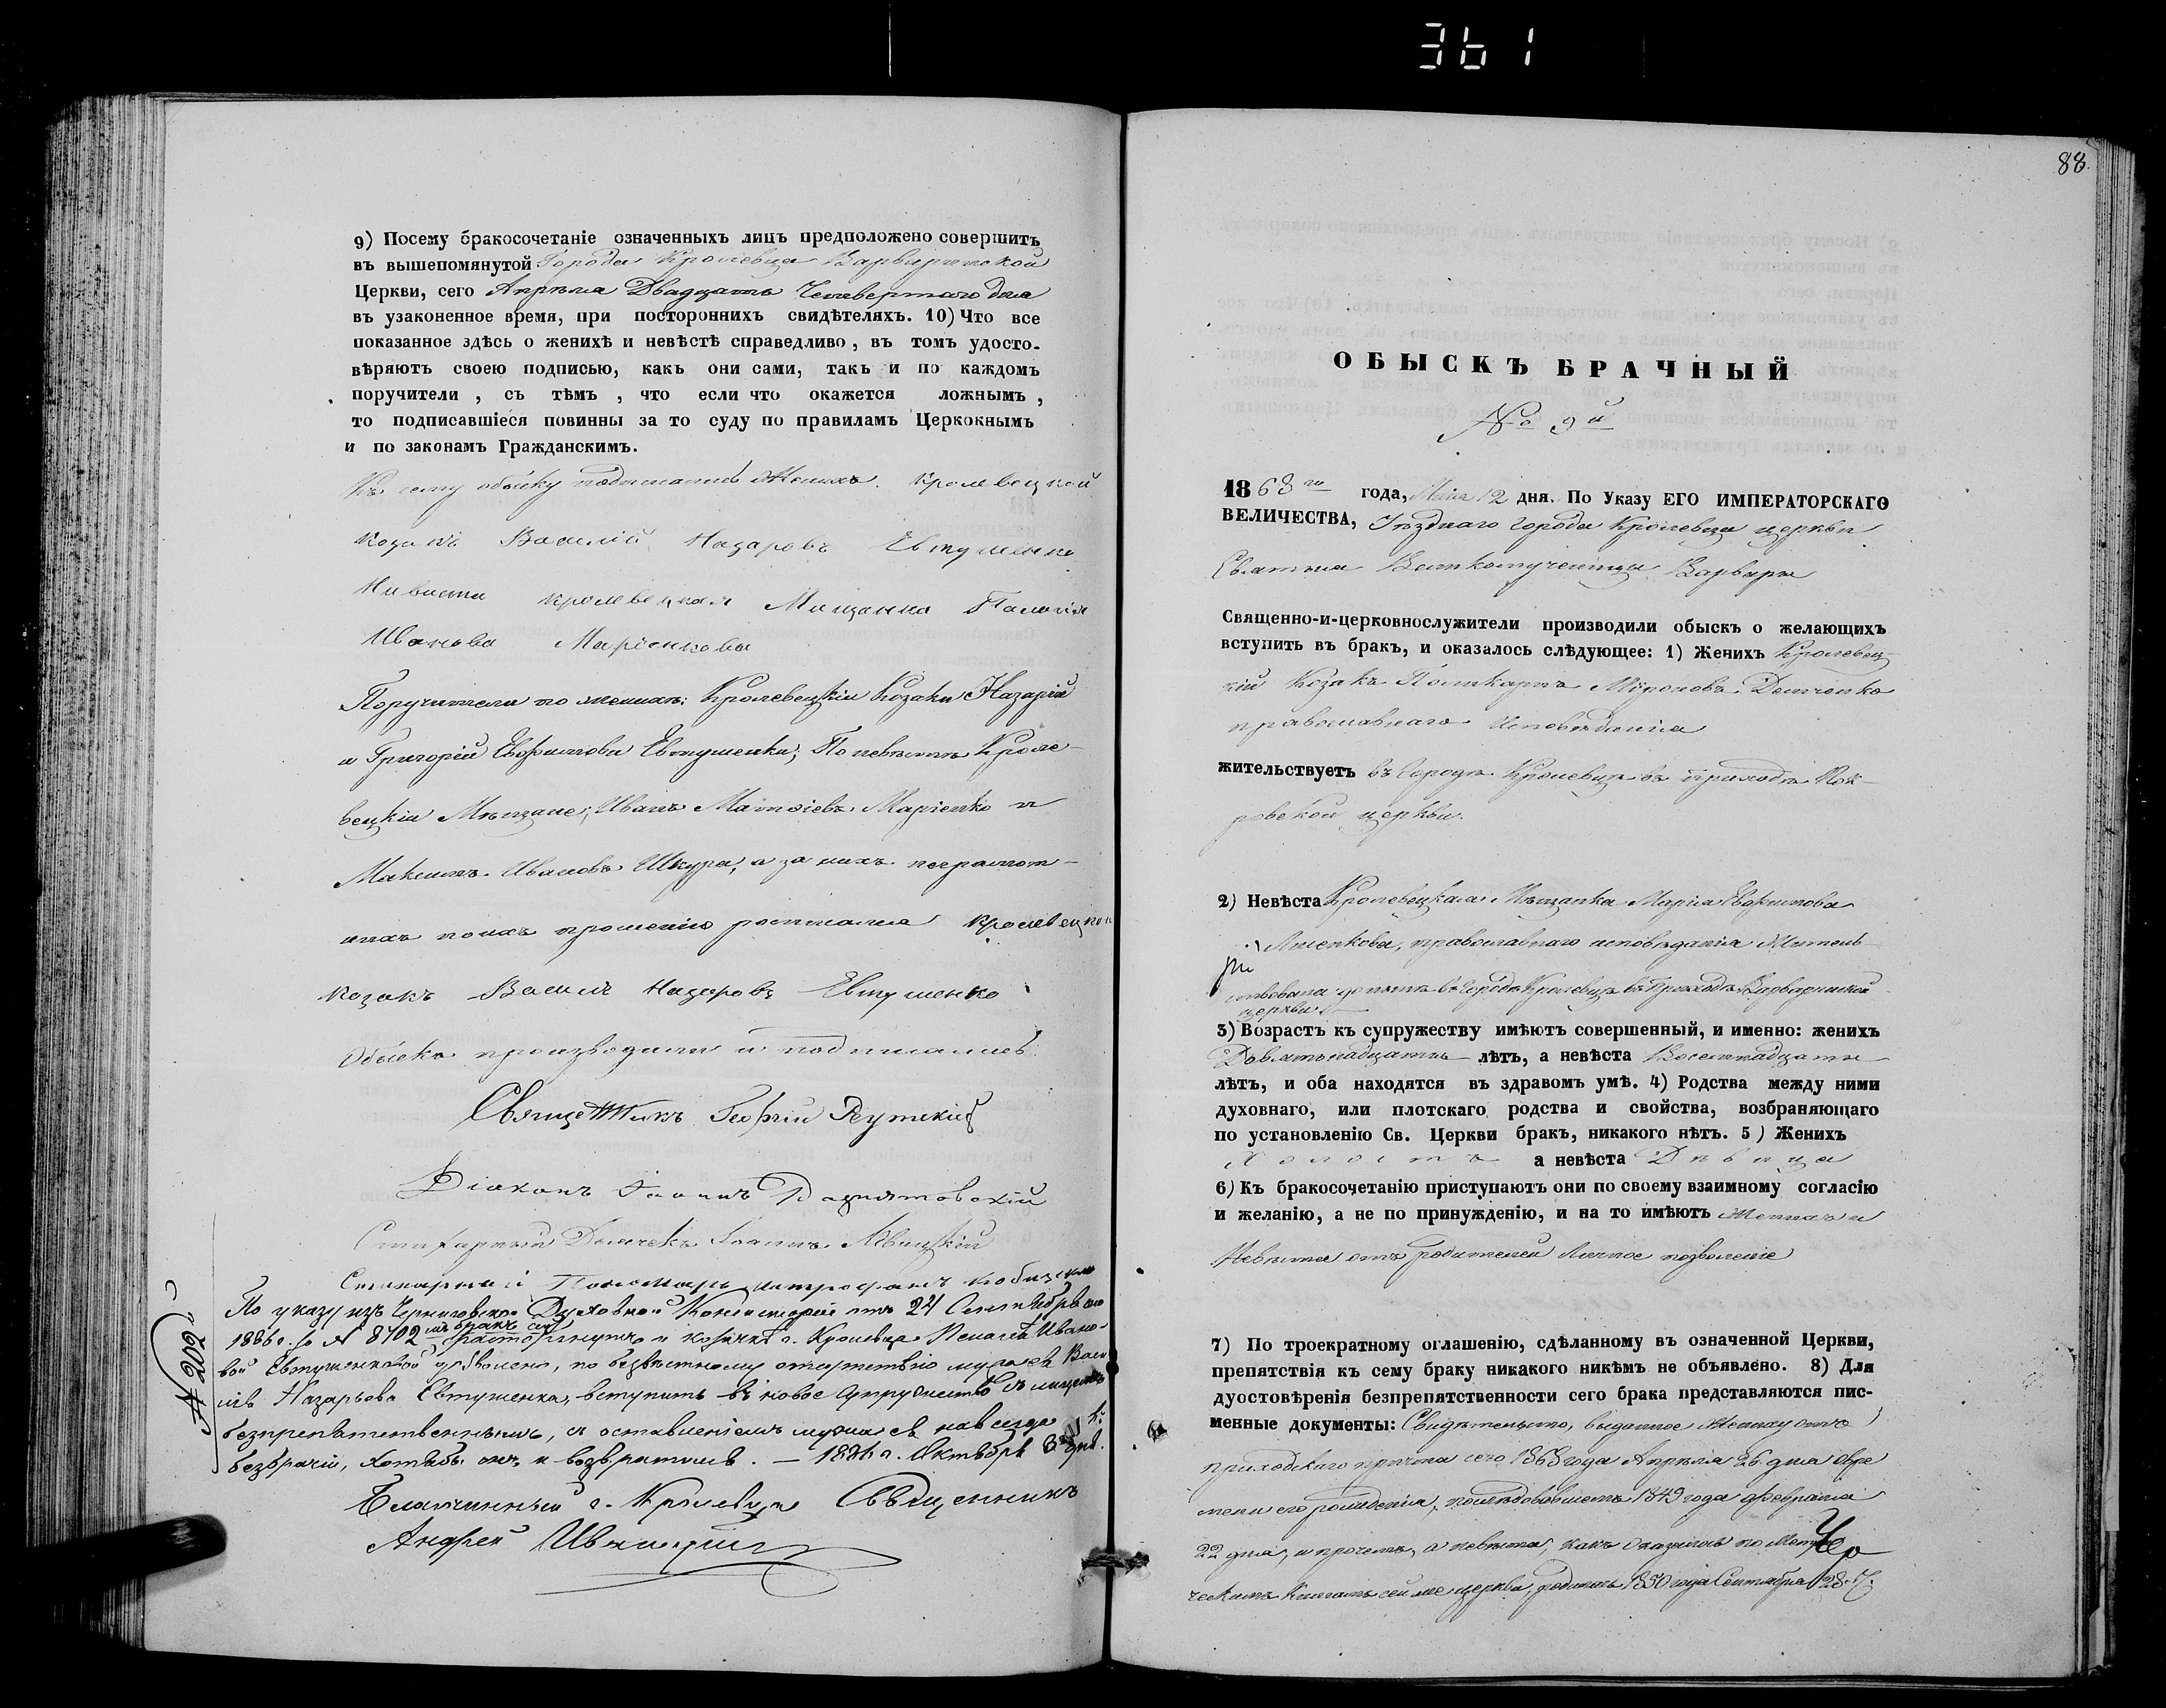 361
9) Посему бракосочетаніе означенныхъ лицъ предположено совершить
въ вышепомянутой Города Кролевца Варваринской
Церкви, сего Апрѣля Двадцать Четвертаго дня
въ узаконенное время, при постороннихъ свидѣтеляхъ. 10) Что все
показанное здѣсь о женихѣ и невѣстѣ справедливо, въ томъ удосто-
вѣряютъ своею подписью, какъ они сами, такъ и по каждомъ
поручители, съ тѣмъ, что если что окажется ложнымъ,
то подписавшіеся повинны за то суду по правиламъ Церкокнымъ
и по законамъ Гражданскимъ.
Къ сему обыску подписались Женихъ. Кролевецкой
козакъ Василій Назаровъ Евтушенко
Нивиста кролевецкая Мищанка Пелагія
Иванова Маріенкова
Поручители по женихѣ: Кролевецкіи Козаки Назарій
и Григорій Евфимовы Евтушенки; По невѣстѣ Кроле-
вецкіи Мѣщане; Иванъ Матвіевъ Маріенко и
Максимъ Ивановъ Шкура, а за нихъ неграмот-
ныхъ поихъ прошенію росписался Кролевецкой
козакъ Василій Назаровъ Евтушенко
Обыскъ производили и подписались:
Священникъ Георгій Реутскій
Діаконъ Іоаннъ
Стихарный Дьячекъ Іоаннъ Левицкій
Стихарный Пономарь Митрофанъ
№ 202
По указу изъ Черниговской Духовной Консисторіи отъ 24 Сентября
1886 г. за № 8702 бракъ сей расторгнутъ и козачкѣ г. Кролевца Пелагеѣ Ивано-
вой Евтушенковой дозволено, по безвѣстному отсутствію мужа ея Васи-
лія Назарьева Евтушенка, вступить въ новое супружество съ лицемъ
безпрепятственнымъ, съ оставленіемъ мужа ея навсегда въ
безбрачіи, хотябы онъ и возвратился. — 1886 г. Октября 3 дня.
Благочинный г. Кролевца Священникъ
Андрей
88.
ОБЫСКЪ БРАЧНЫЙ
№ 9й
1868го года, Мая 12 дня. По Указу ЕГО ИМПЕРАТОРСКАГО
ВЕЛИЧЕСТВА, Уѣзднаго города Кролевца церкви
Святыя Великомученицы Варвары
Священно-и-церковнослужители производили обыскъ о желающихъ
вступить въ бракъ, и оказалось слѣдующее: 1) Женихъ Кролевец-
кій Козакъ Поликарпъ Мироновъ Демченко
православнаго исповѣданія
жительствуетъ въ Городѣ Кролевцѣ въ приходѣ Пок-
ровской церкви.
2) Невѣста Кролевецкая Мѣщанка Марія Евфимова
православнаго исповѣданія Житель-
ствовала до нынѣ въ Городѣ Кролевцѣ въ Приходѣ Варваринской
церкви.
3) Возрастъ къ супружеству имѣютъ совершенный, и именно: женихъ
Девятьнадцать лѣтъ, а невѣста Восемнадцать
лѣтъ, и оба находятся въ здравомъ умѣ. 4) Родства между ними
духовнаго, или плотскаго родства и свойства, возбраняющаго
по установленію Св. Церкви бракъ, никакого нѣтъ. 5) Женихъ
Холостъ а невѣста Дѣвица
6) Къ бракосочетанію приступаютъ они по своему взаимному согласію
и желанію, а не по принужденію, и на то имѣютъ Женихъ и
Невѣста отъ родителей личное позволеніе
7) По троекратному оглашенію, сдѣланному въ означенной Церкви,
препятствія къ сему браку никакого никѣмъ не объявлено. 8) Для
дуостовѣренія безпрепятственности сего брака представляются пис-
менные документы: Свидѣтельство, выданное Жениху отъ
приходскаго причта сего 1868 года Апрѣля 26 дня овре
мени его рожденія, послѣдовавшемъ 1849 года февраля
22 дня, и прочемъ, а невѣста, какъ оказалось по Метри
ческимъ Книгамъ сей же церкви, родилась 1850 года Сентября 28.